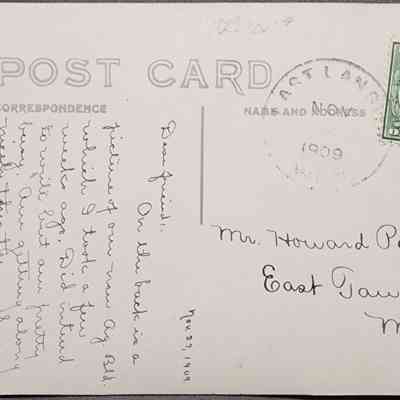 POST CARD
CORRESPONDENCE
NAME AND ADDRESS
EAST LANS
NOV
1909
Mr. Howard
East Taw
M
Nov. 27, 1909
Dear friend:
On the back is a
picture of our new Ag. Bld.
which I took a few
weeks ago. Did intend
to write but am pretty
busy. Am getting along